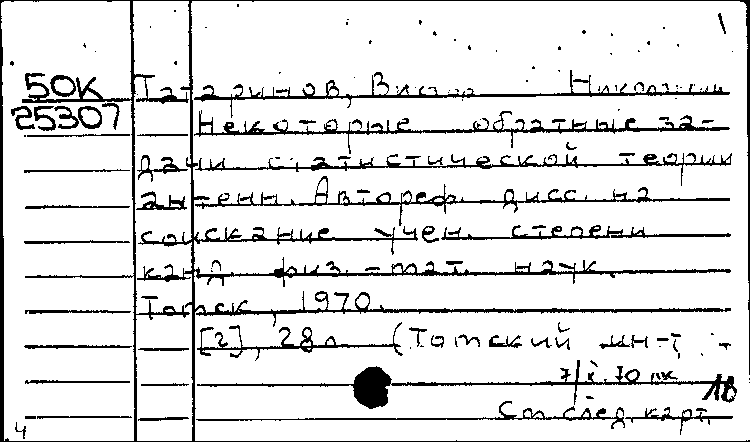 1
50К
25307
Татаринов, Виктор Николаевич
Некоторые обратные за-
дачи статистической теории
антенн. Автореф. дисс. на
соискание учен. степени
канд. физ.-мат. наук.
Томск, 1970.
[2], 28 л. (Томский ин-т
7/X.70 пк
1в
См. след. карт.
4